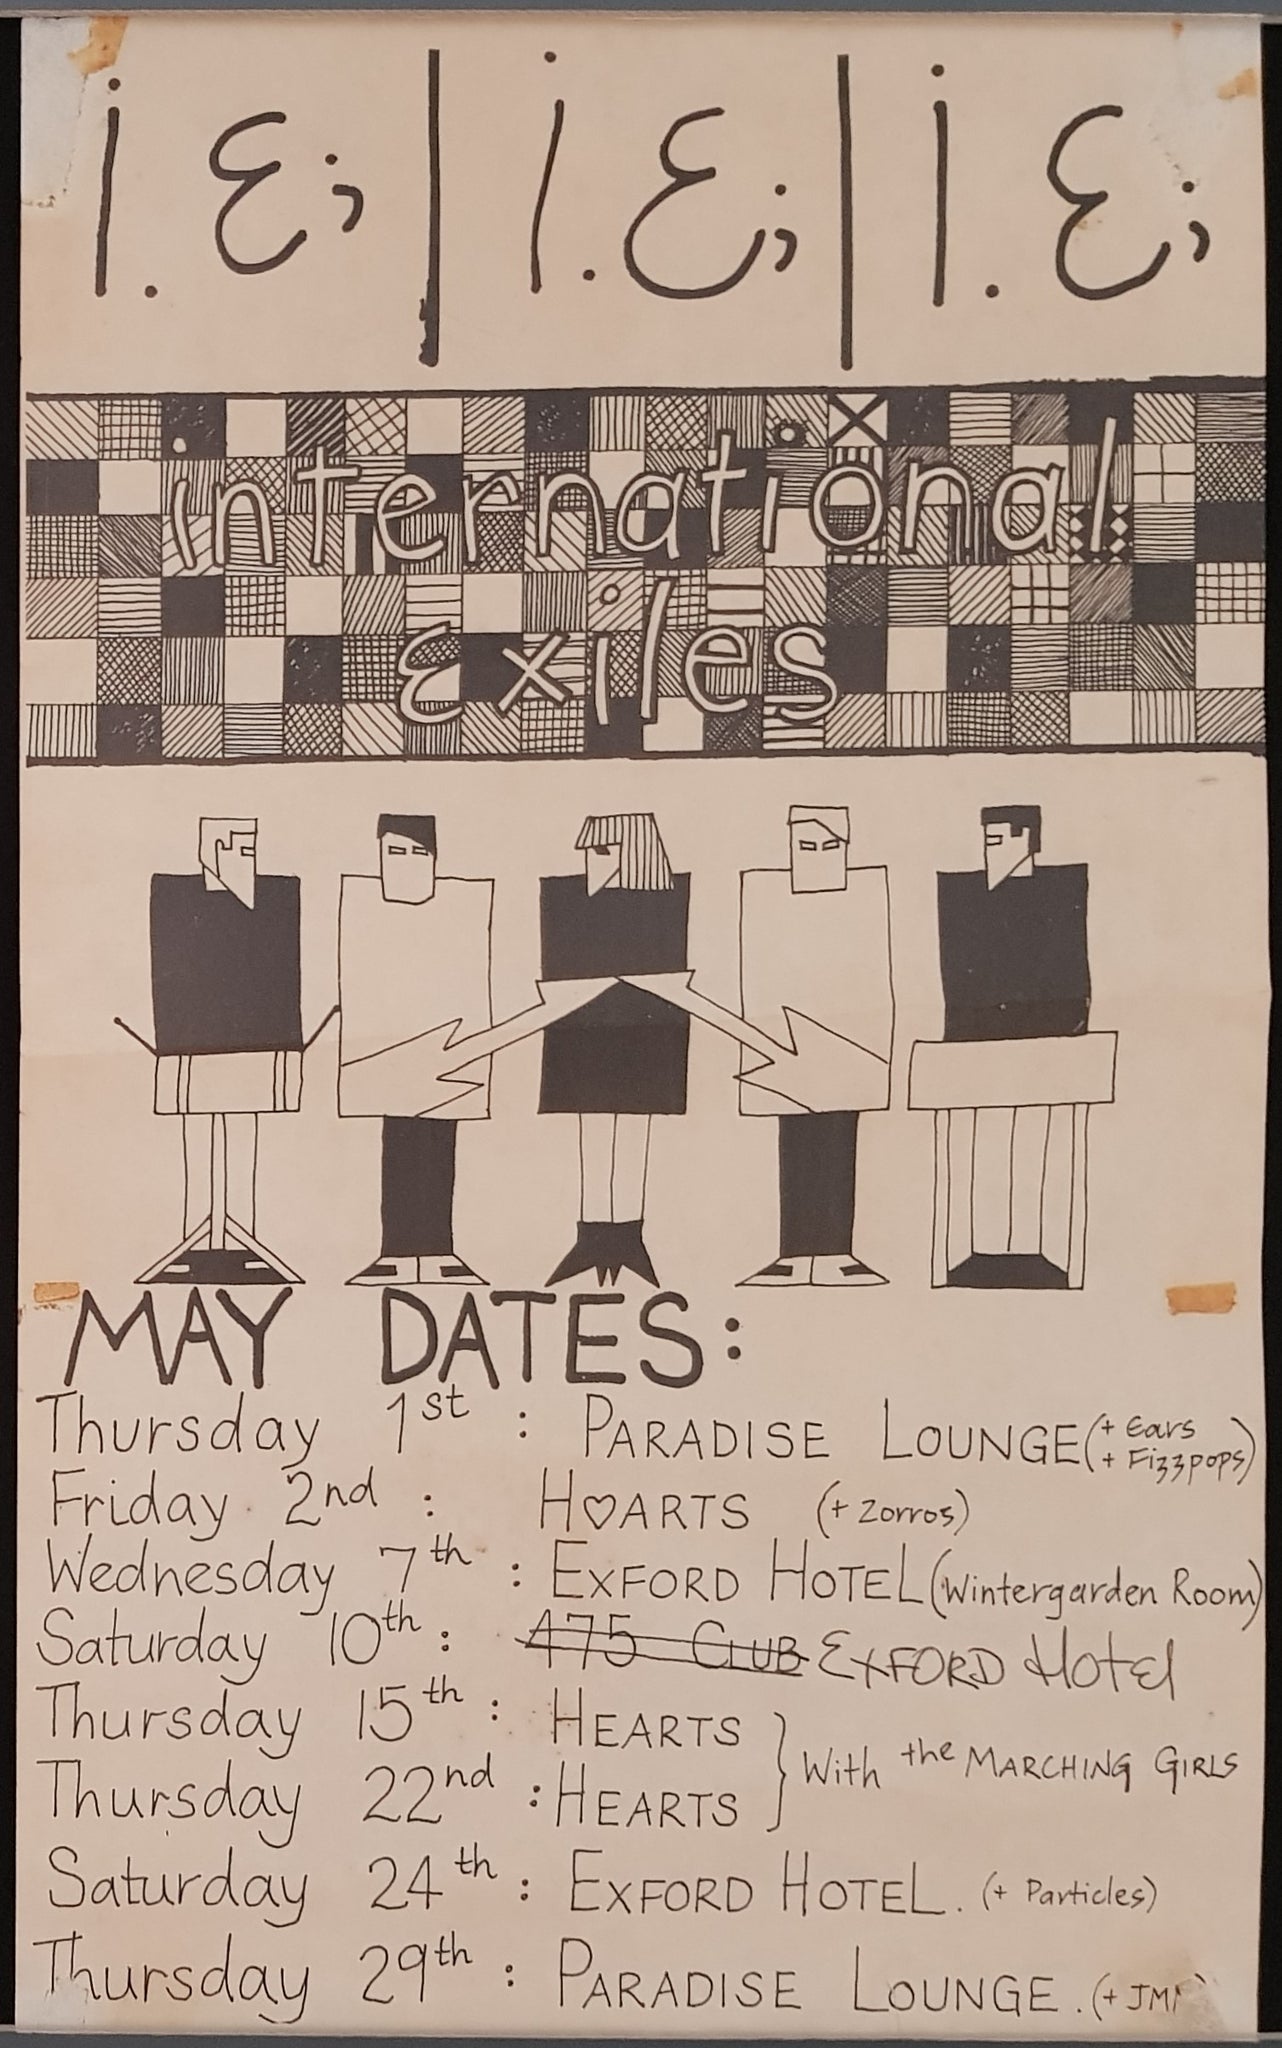 i. E; | i. E; | i. E;
international
Exiles
MAY DATES:
Thursday 1st : PARADISE LOUNGE (+ Ears
+ Fizzpops)
Friday 2nd : H♡ARTS (+ Zorros)
Wednesday 7th : EXFORD HOTEL (Wintergarden Room)
Saturday 10th : 475 CLUB EXFORD Hotel
Thursday 15th : HEARTS
Thursday 22nd : HEARTS
} With the MARCHING GIRLS
Saturday 24th : EXFORD HOTEL. (+ Particles)
Thursday 29th : PARADISE LOUNGE. (+